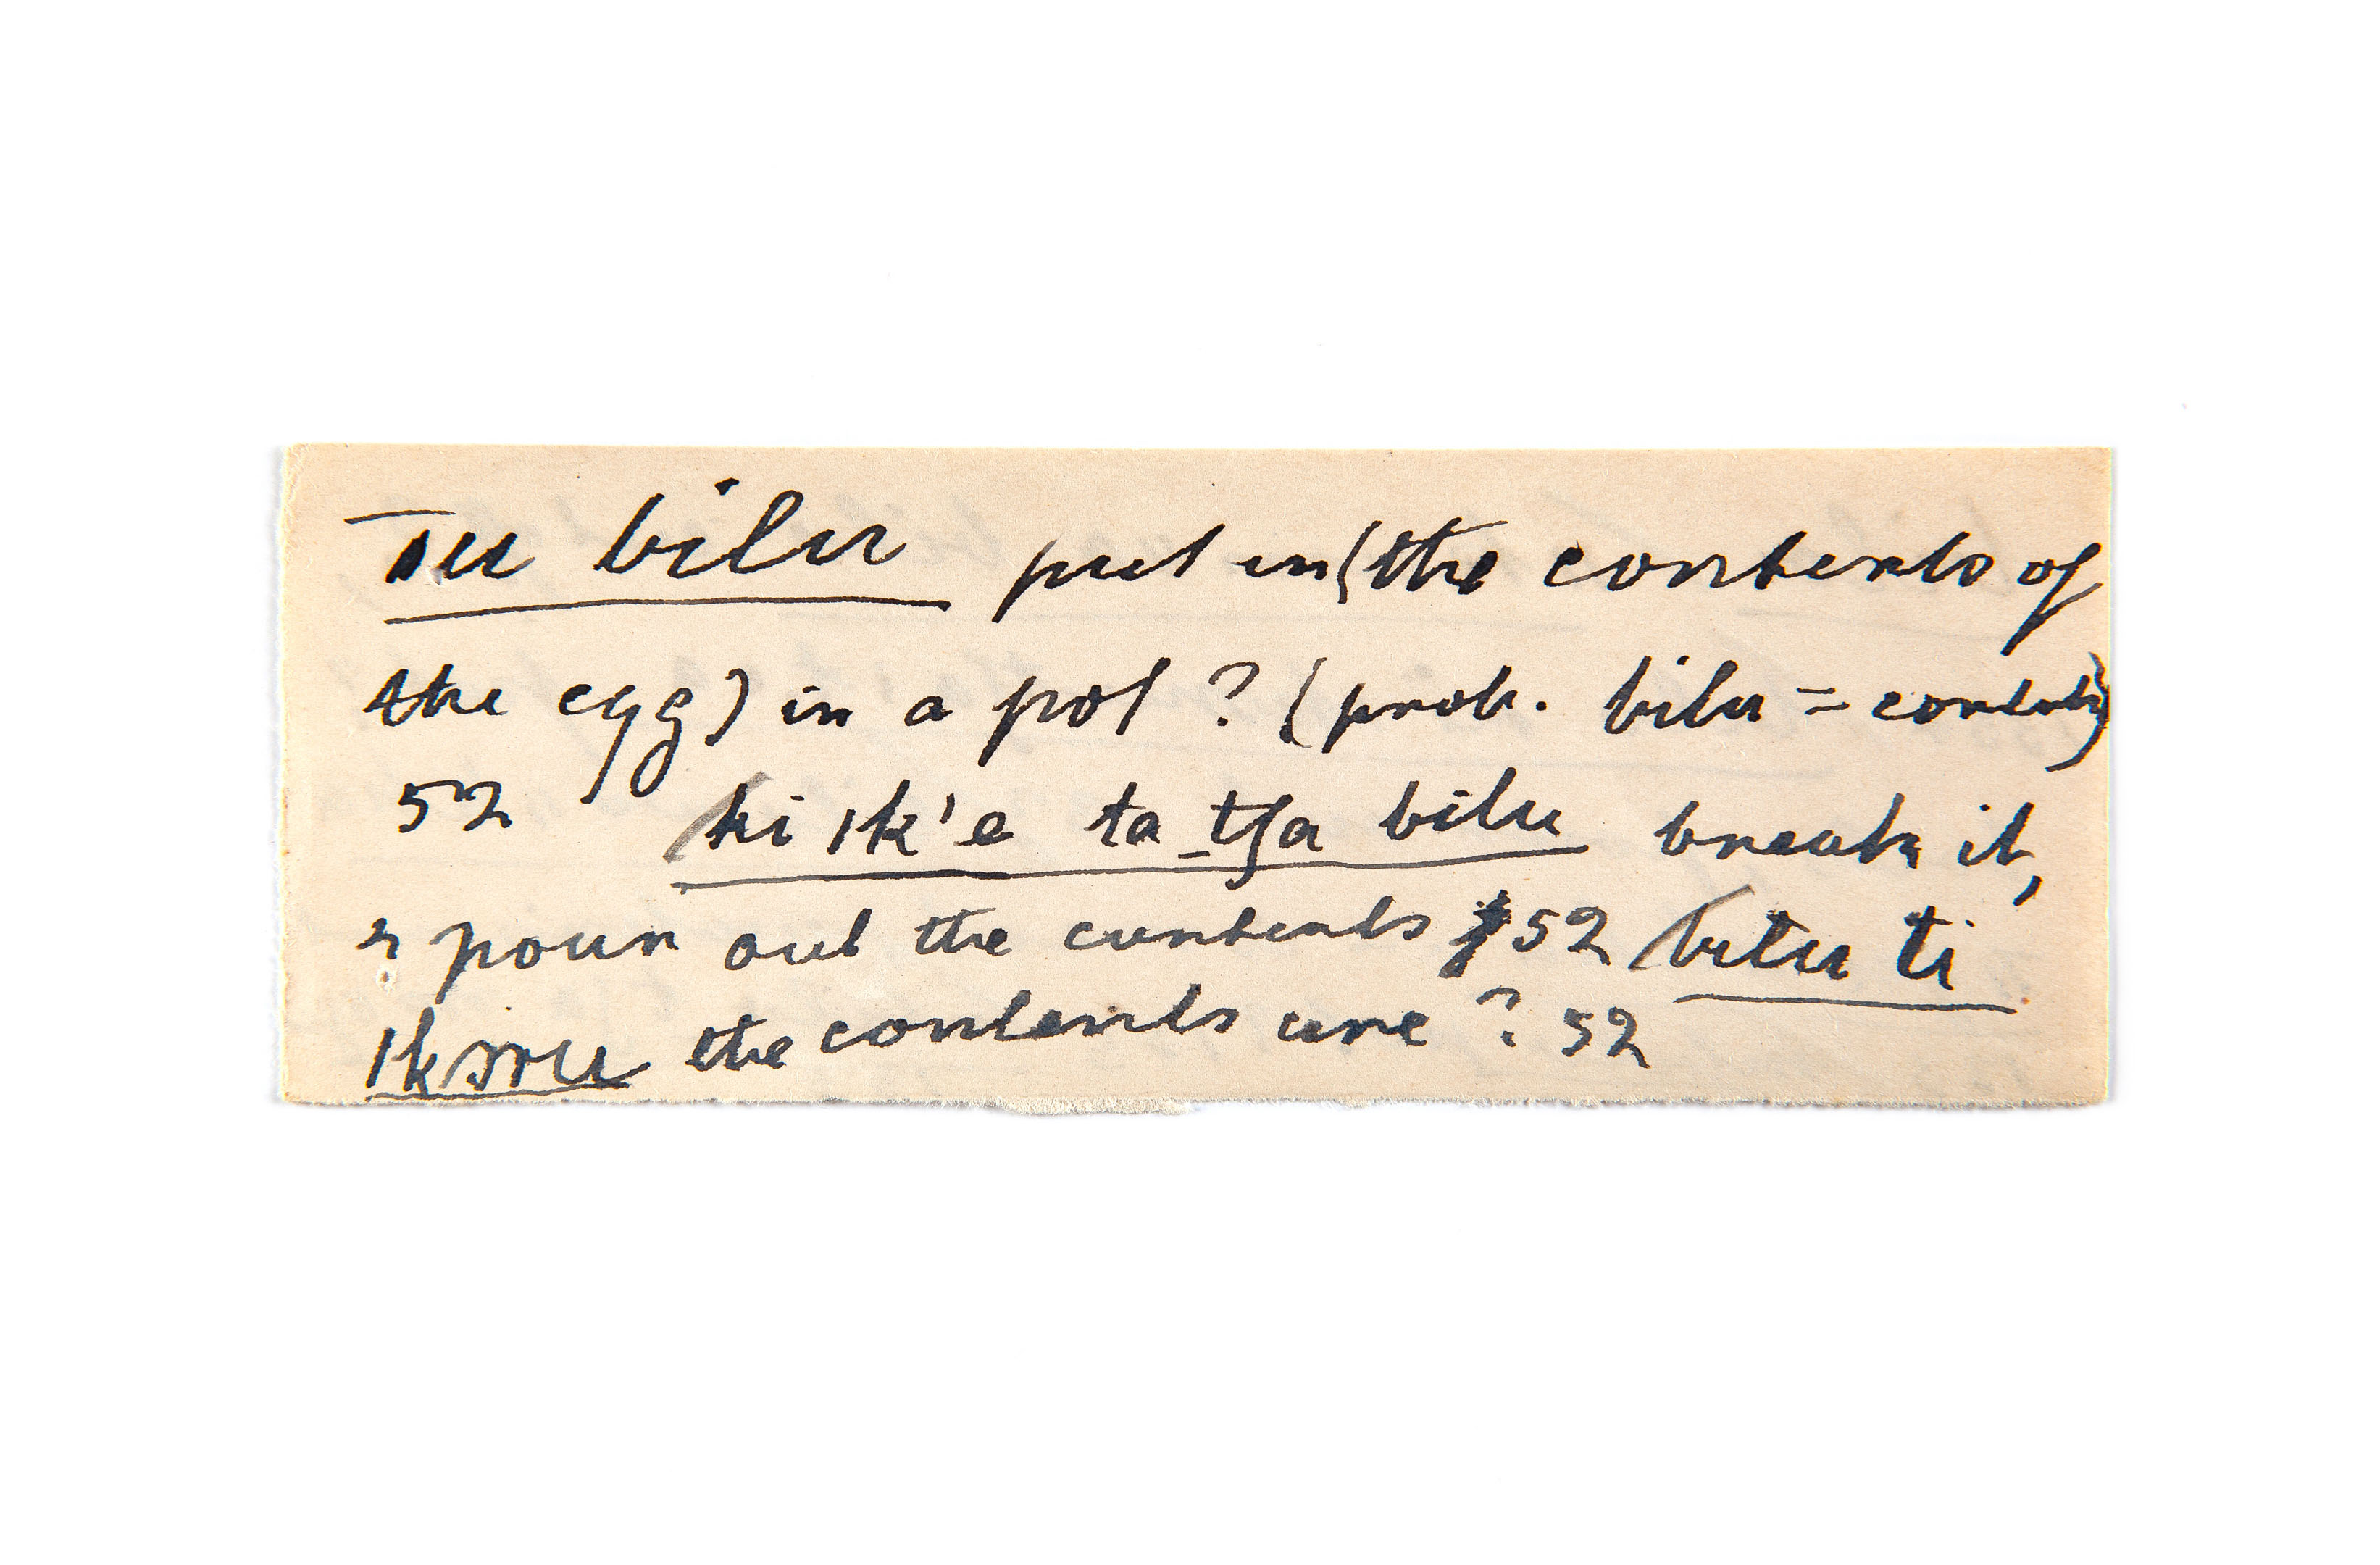 ɔu bilu put in (the contents of
the egg) in a pot? (prob. bilu = contents)
52 ki ǀk'e ta tʃa bilu break it,
& pour out the contents 52 bilu ti
the contents are? 52